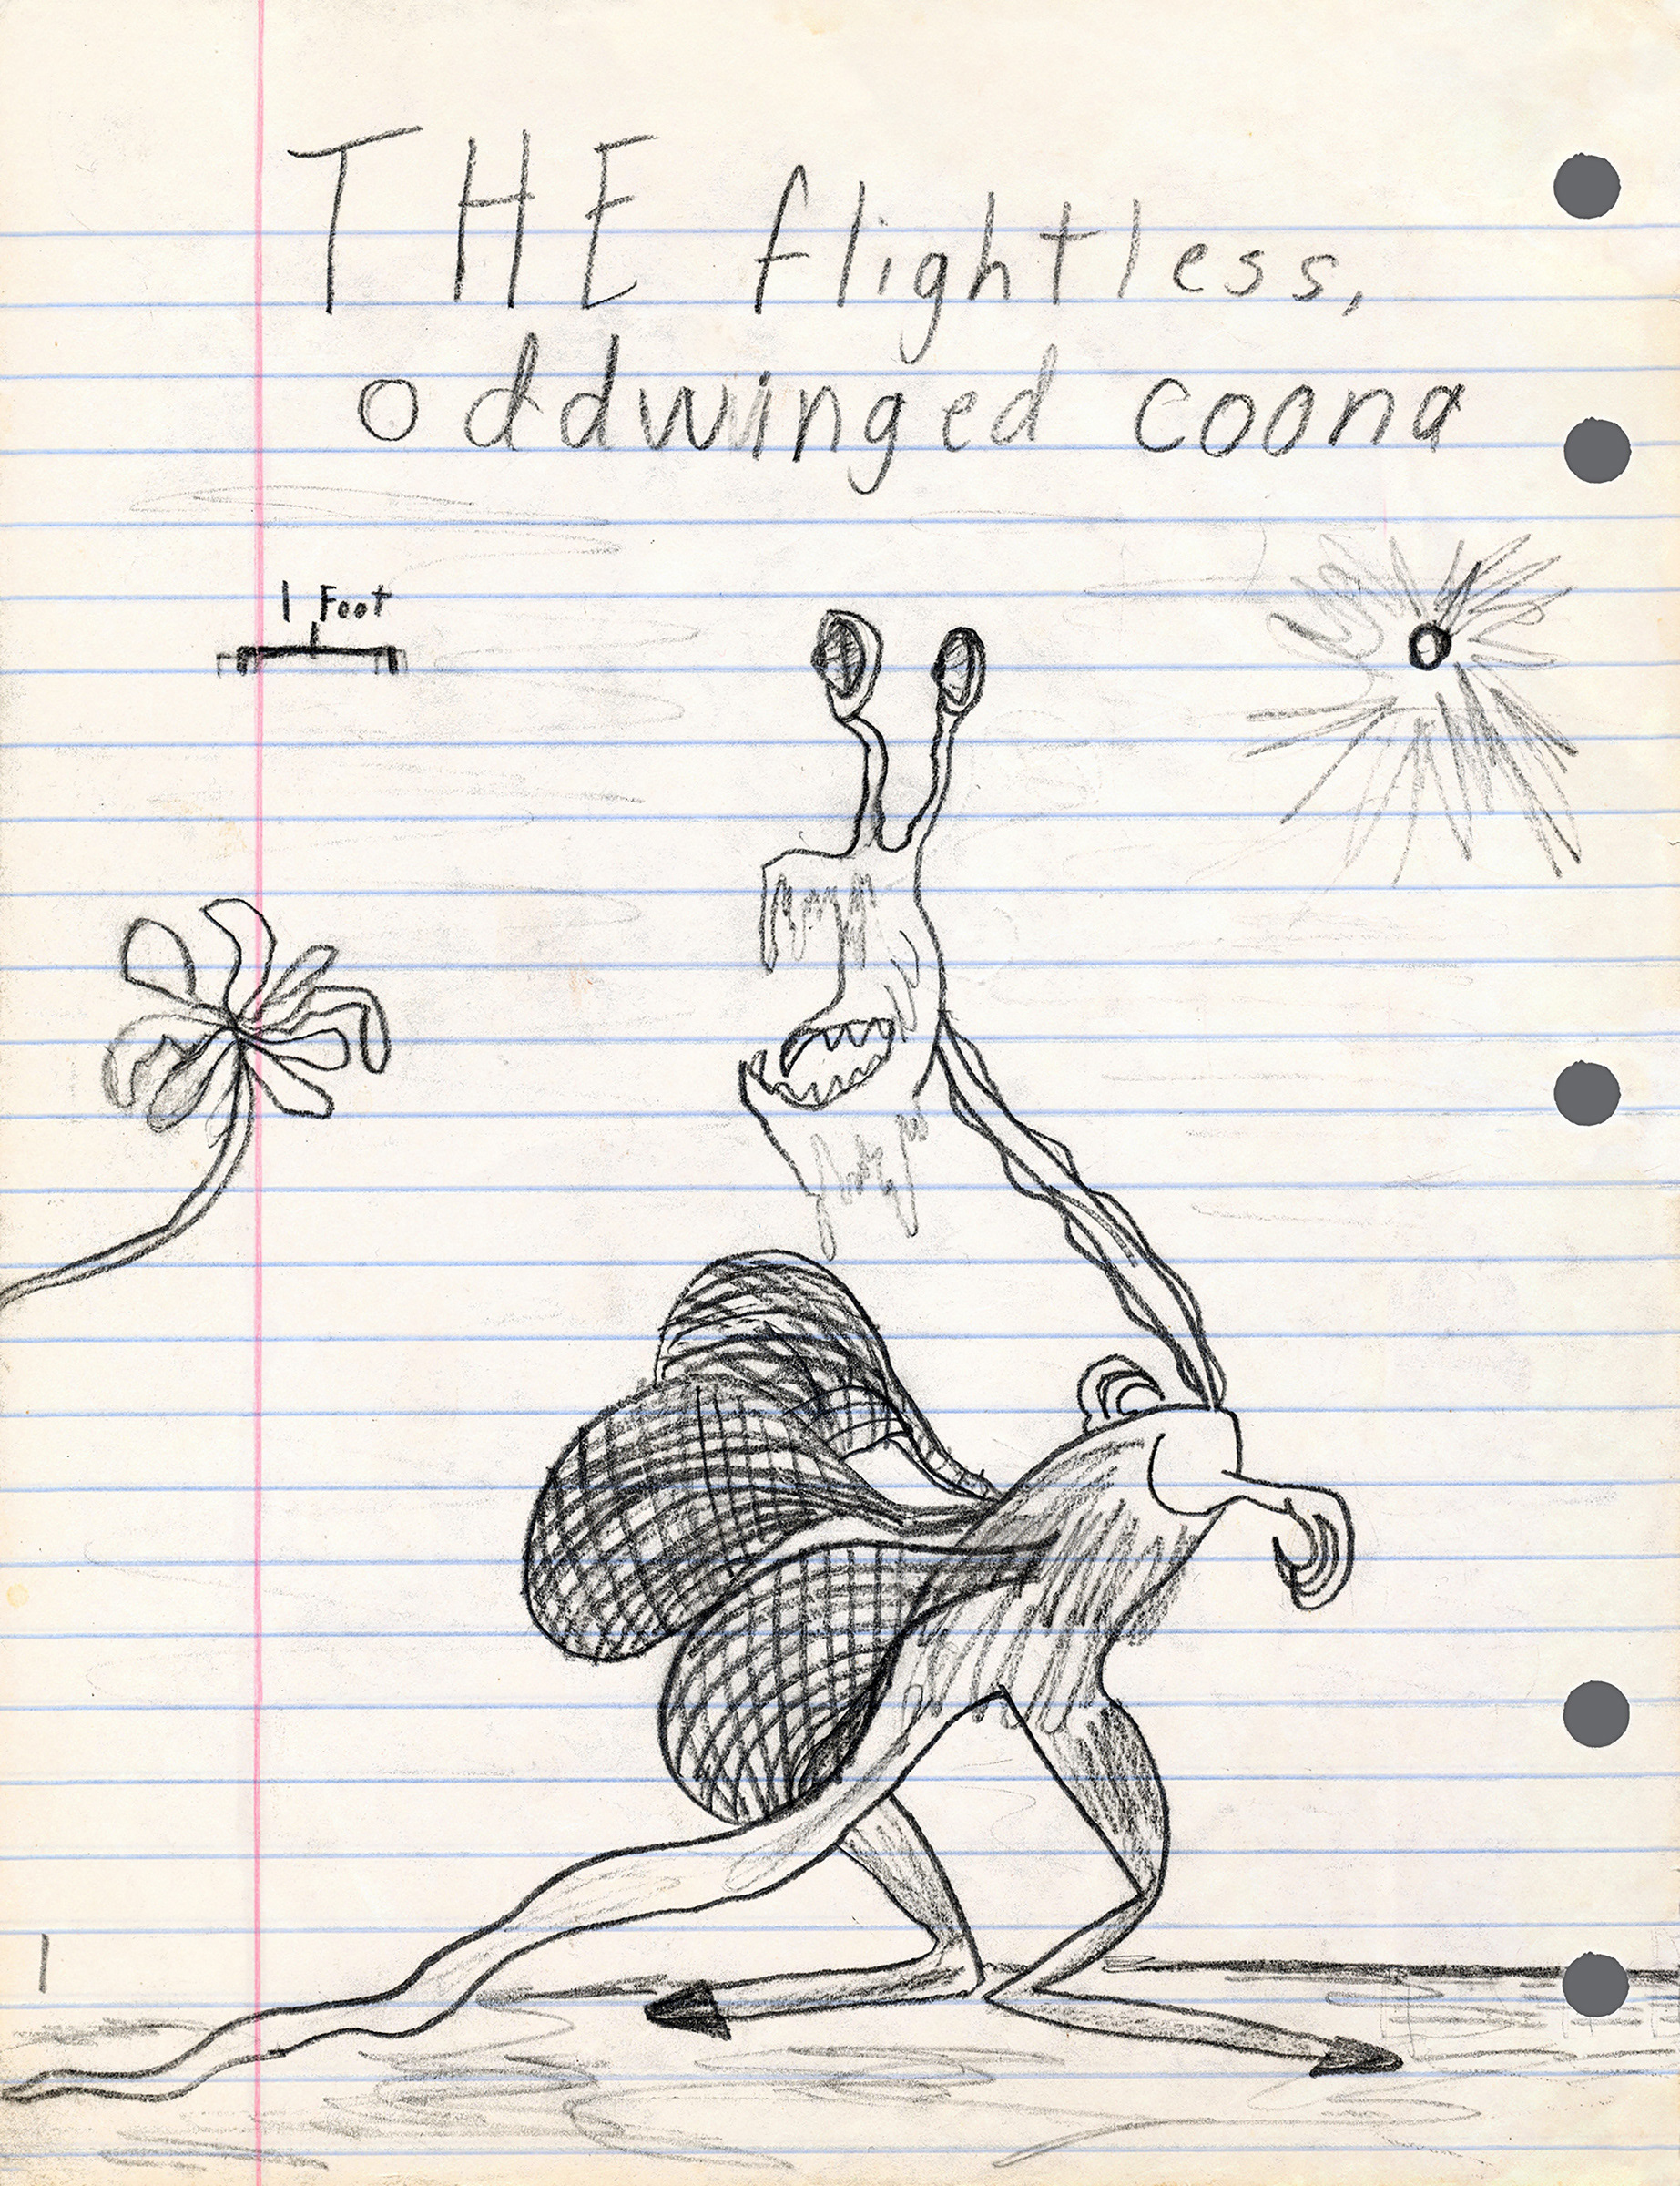 THE flightless,
oddwinged coona
1 Foot
1